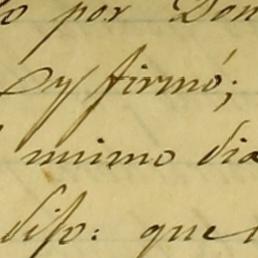 por Don
y firmó;
mimo dia
diso: que